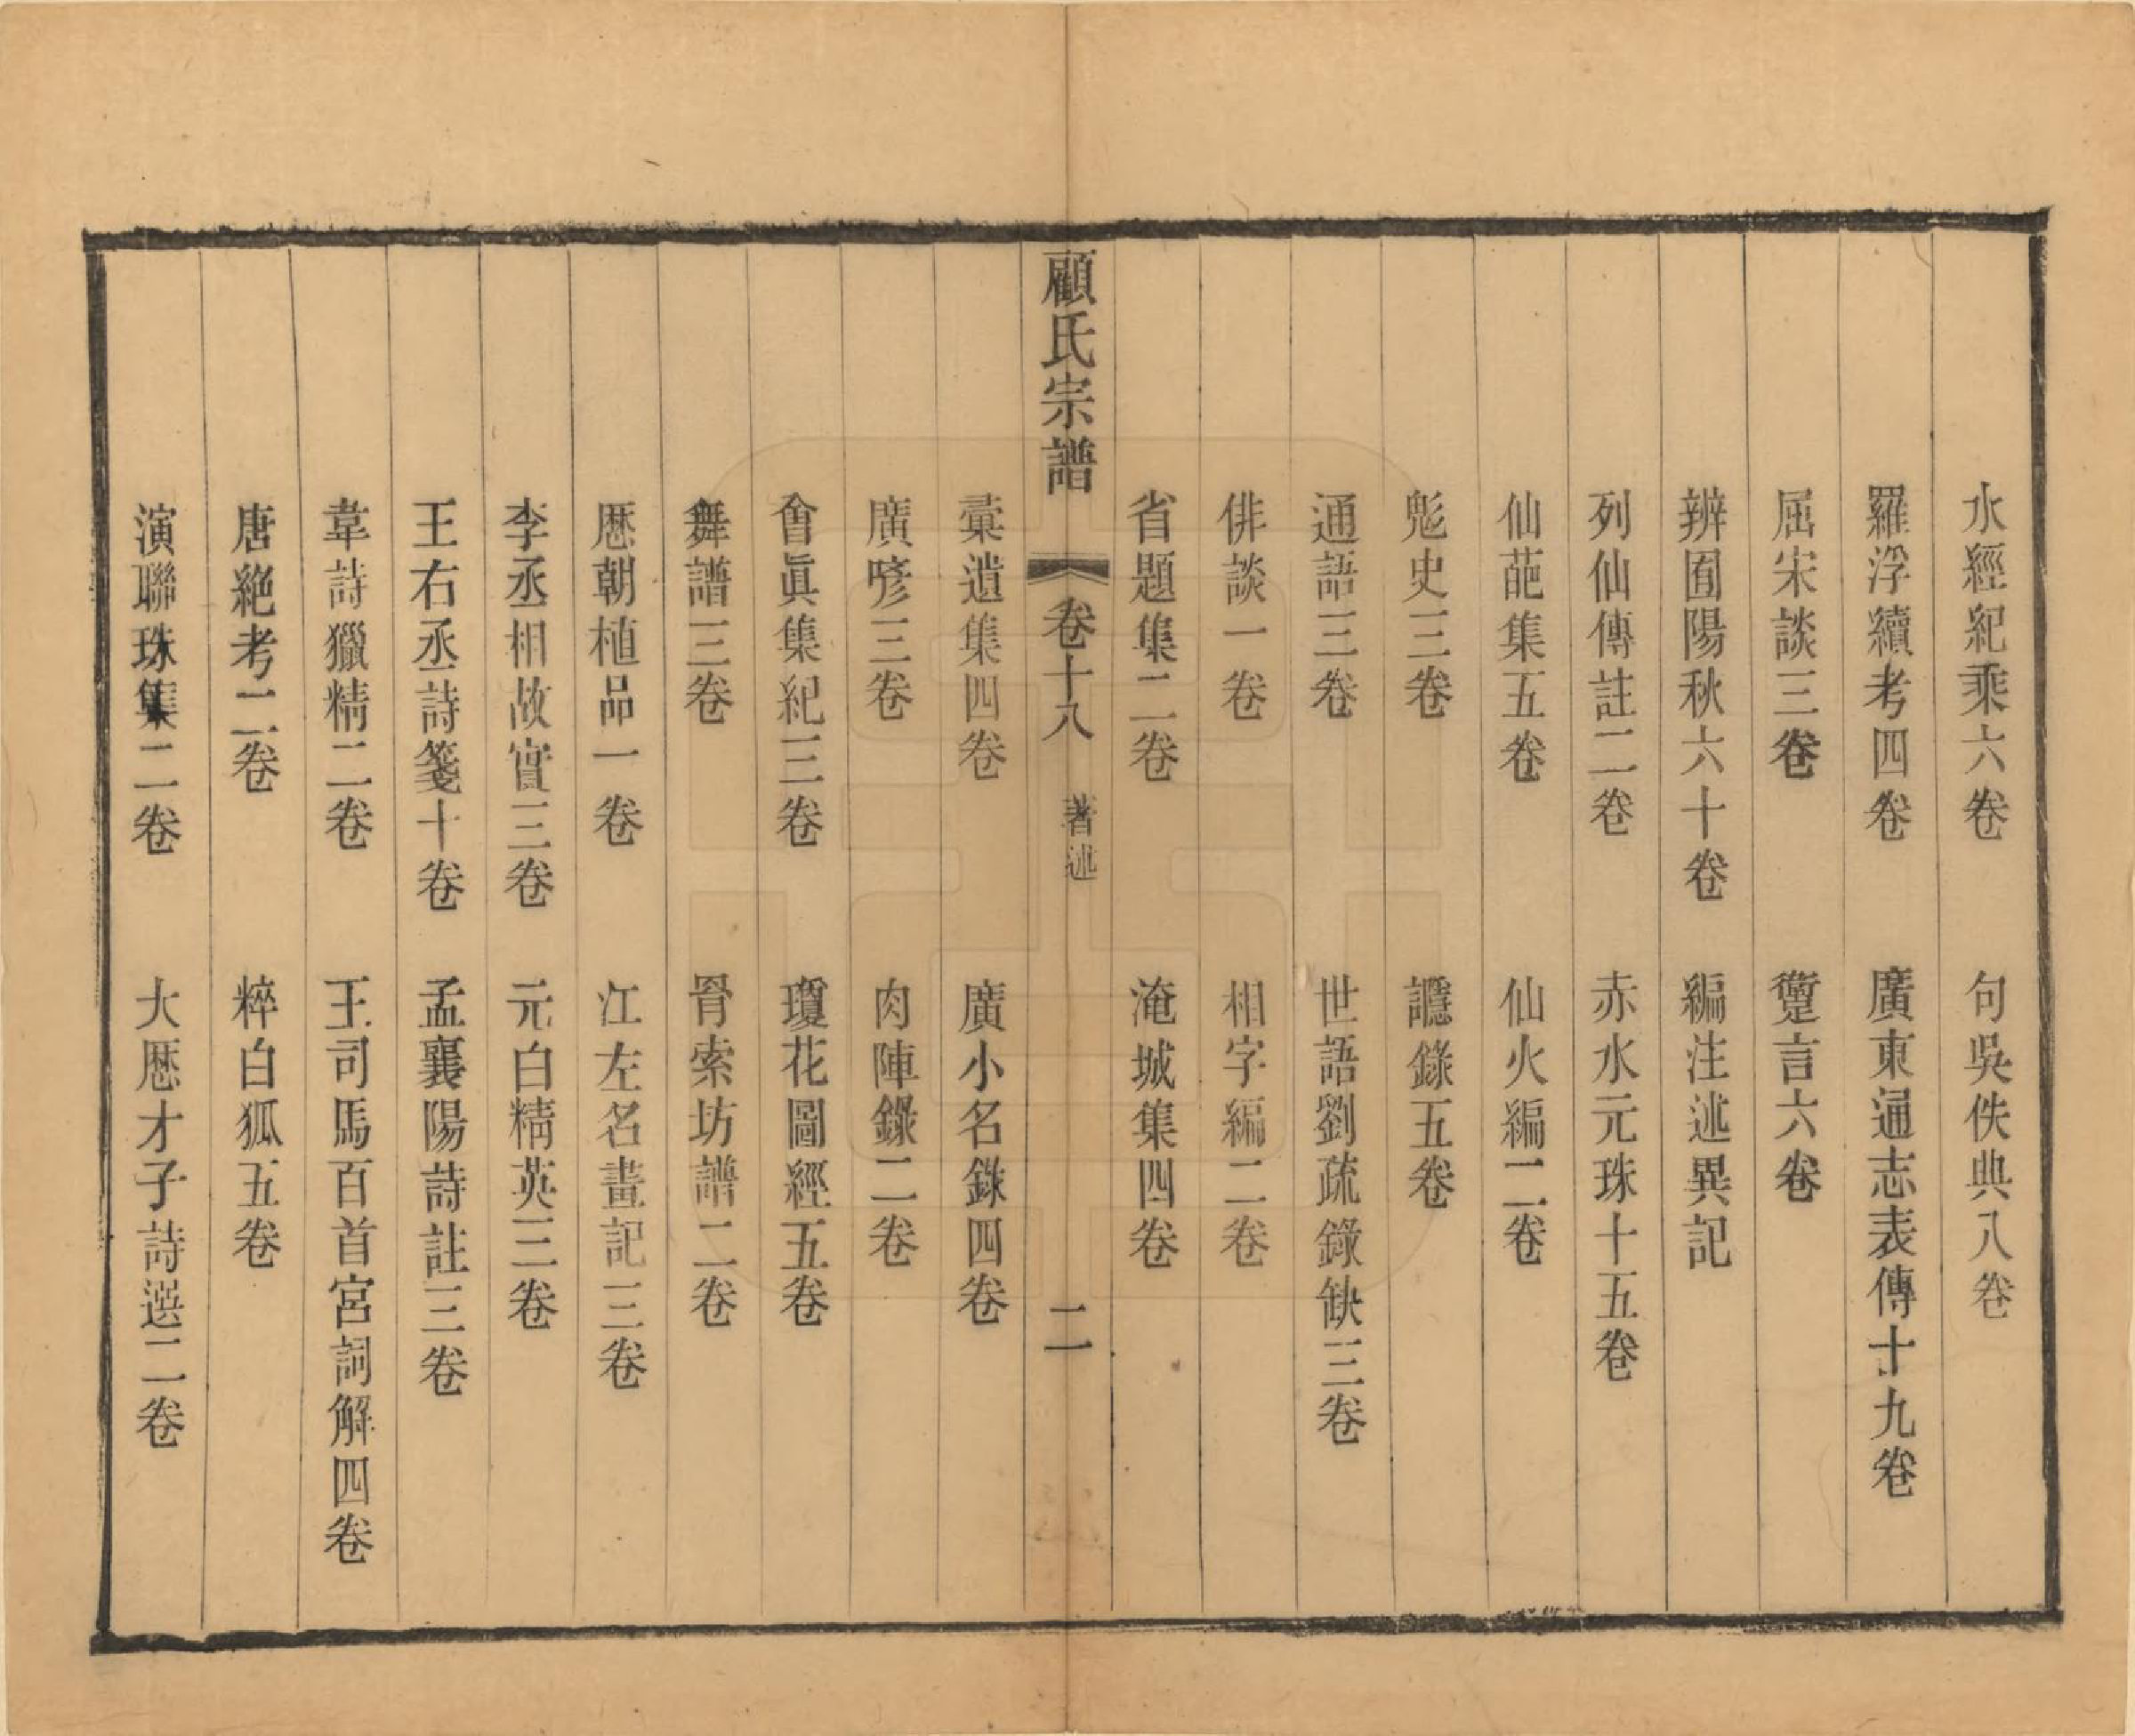 水經紀乘六卷　句吳佚典八卷
羅浮續考四卷　廣東通志表傳十九卷
屈宋談三卷　躗言六卷
辨囿陽秋六十卷　編注述異記
列仙傳註二卷　赤水元珠十五卷
仙葩集五卷　仙火編二卷
鬽史三卷　讔錄五卷
通語三卷　世語劉疏錄缺三卷
俳談一卷　相字編二卷
省題集二卷　淹城集四卷
顧氏宗譜　卷十八　著述　二
彙遺集四卷　廣小名錄四卷
廣喭三卷　肉陣錄二卷
會眞集紀三卷　瓊花圖經五卷
舞譜三卷　胥索坊譜二卷
歷朝植品一卷　江左名畫記三卷
李丞相故實三卷　元白精英三卷
王右丞詩箋十卷　孟襄陽詩註三卷
韋詩獵精二卷　王司馬百首宮詞解四卷
唐絶考二卷　粹白狐五卷
演聯珠集二卷　大歷才子詩選二卷